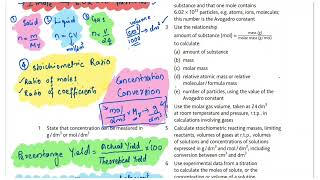 ① Solid
n = m/Mr
② Liquid
n = CV
③ Gas
n = V/24
volume
cm³/1000 → dm³
④ Stoichiometric Ratio
Ratio of moles
Ratio of coefficients
Concentration
Conversion
mol/dm³ × Mr → g/dm³
1 State that concentration can be measured in
g/dm³ or mol/dm³
Percentage Yield = Actual Yield / Theoretical Yield × 100
substance and that one mole contains
6.02 × 10²³ particles, e.g. atoms, ions, molecules;
this number is the Avogadro constant
3 Use the relationship
amount of substance (mol) = mass (g) / molar mass (g/mol)
to calculate
(a) amount of substance
(b) mass
(c) molar mass
(d) relative atomic mass or relative
molecular/formula mass
(e) number of particles, using the value of the
Avogadro constant
4 Use the molar gas volume, taken as 24 dm³
at room temperature and pressure, r.t.p., in
calculations involving gases
5 Calculate stoichiometric reacting masses, limiting
reactants, volumes of gases at r.t.p., volumes
of solutions and concentrations of solutions
expressed in g/dm³ and mol/dm³, including
conversion between cm³ and dm³
6 Use experimental data from a titration
to calculate the moles of solute, or the
concentration or volume of a solution